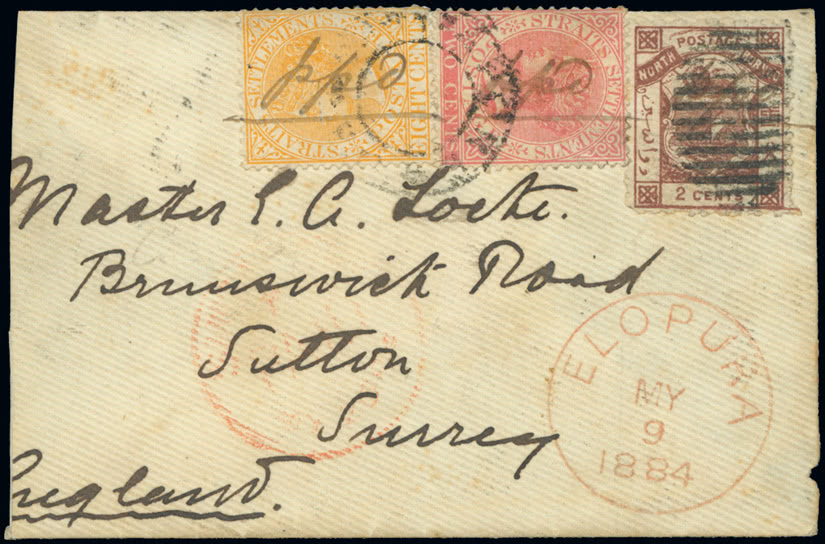 STRAITS SETTLEMENTS
POSTAGE
EIGHT CENTS
STRAITS SETTLEMENTS
POSTAGE
TWO CENTS
POSTAGE
NORTH BORNEO
2 CENTS
Master E. A. Locke.
Brunswick Road
Sutton
Surrey
England.
ELOPURA
MY
9
1884